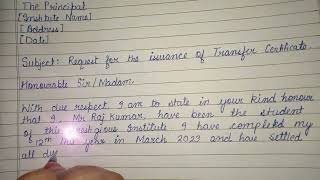 The Principal
[Institute Name]
[Address]
[Date]
Subject: Request for the issuance of Transfer Certificate.
Honourable Sir/Madam
With due respect, I am to state in your kind honour
that I, Mr Raj Kumar, have been the student
of this prestigious Institute I have completed my
12th this year in March 2023 and have settled
all due